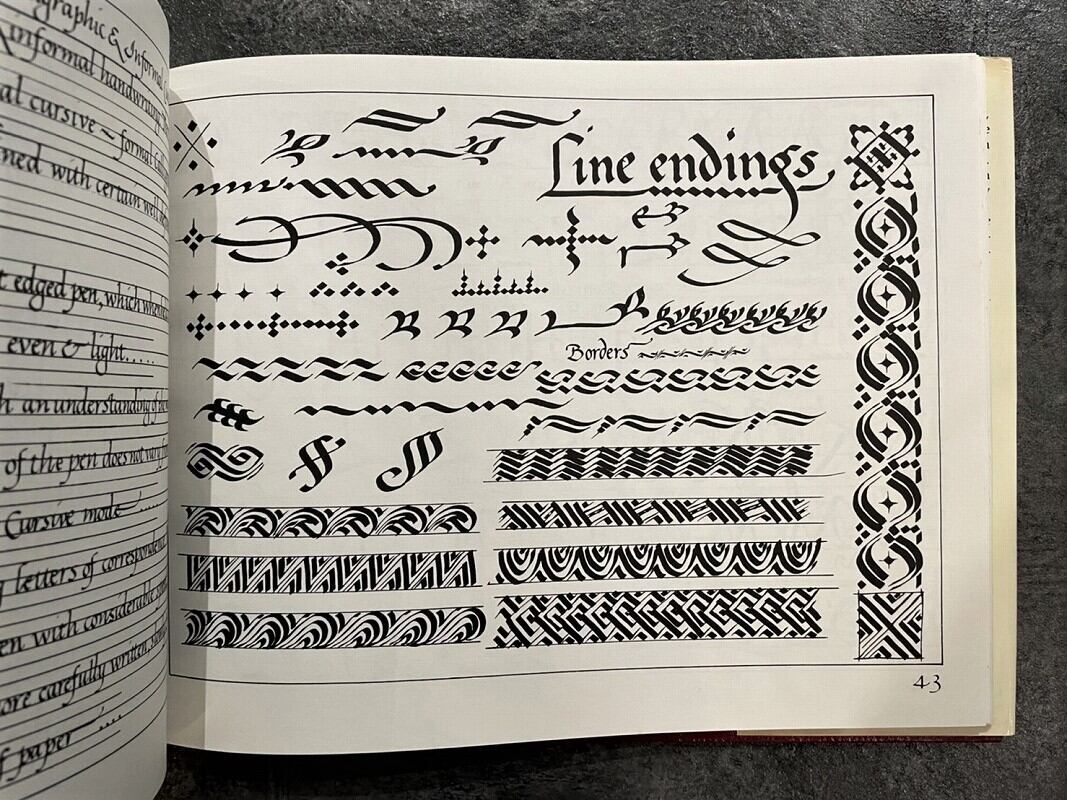 graphic & Informal
& informal handwriting
al cursive ~ formal
ned with certain well
t edged pen, which when
even & light.....
h an understanding of
of the pen does not vary
Cursive mode
letters of correspondence
en with considerable
ore carefully written,
f paper
Line endings
Borders
43